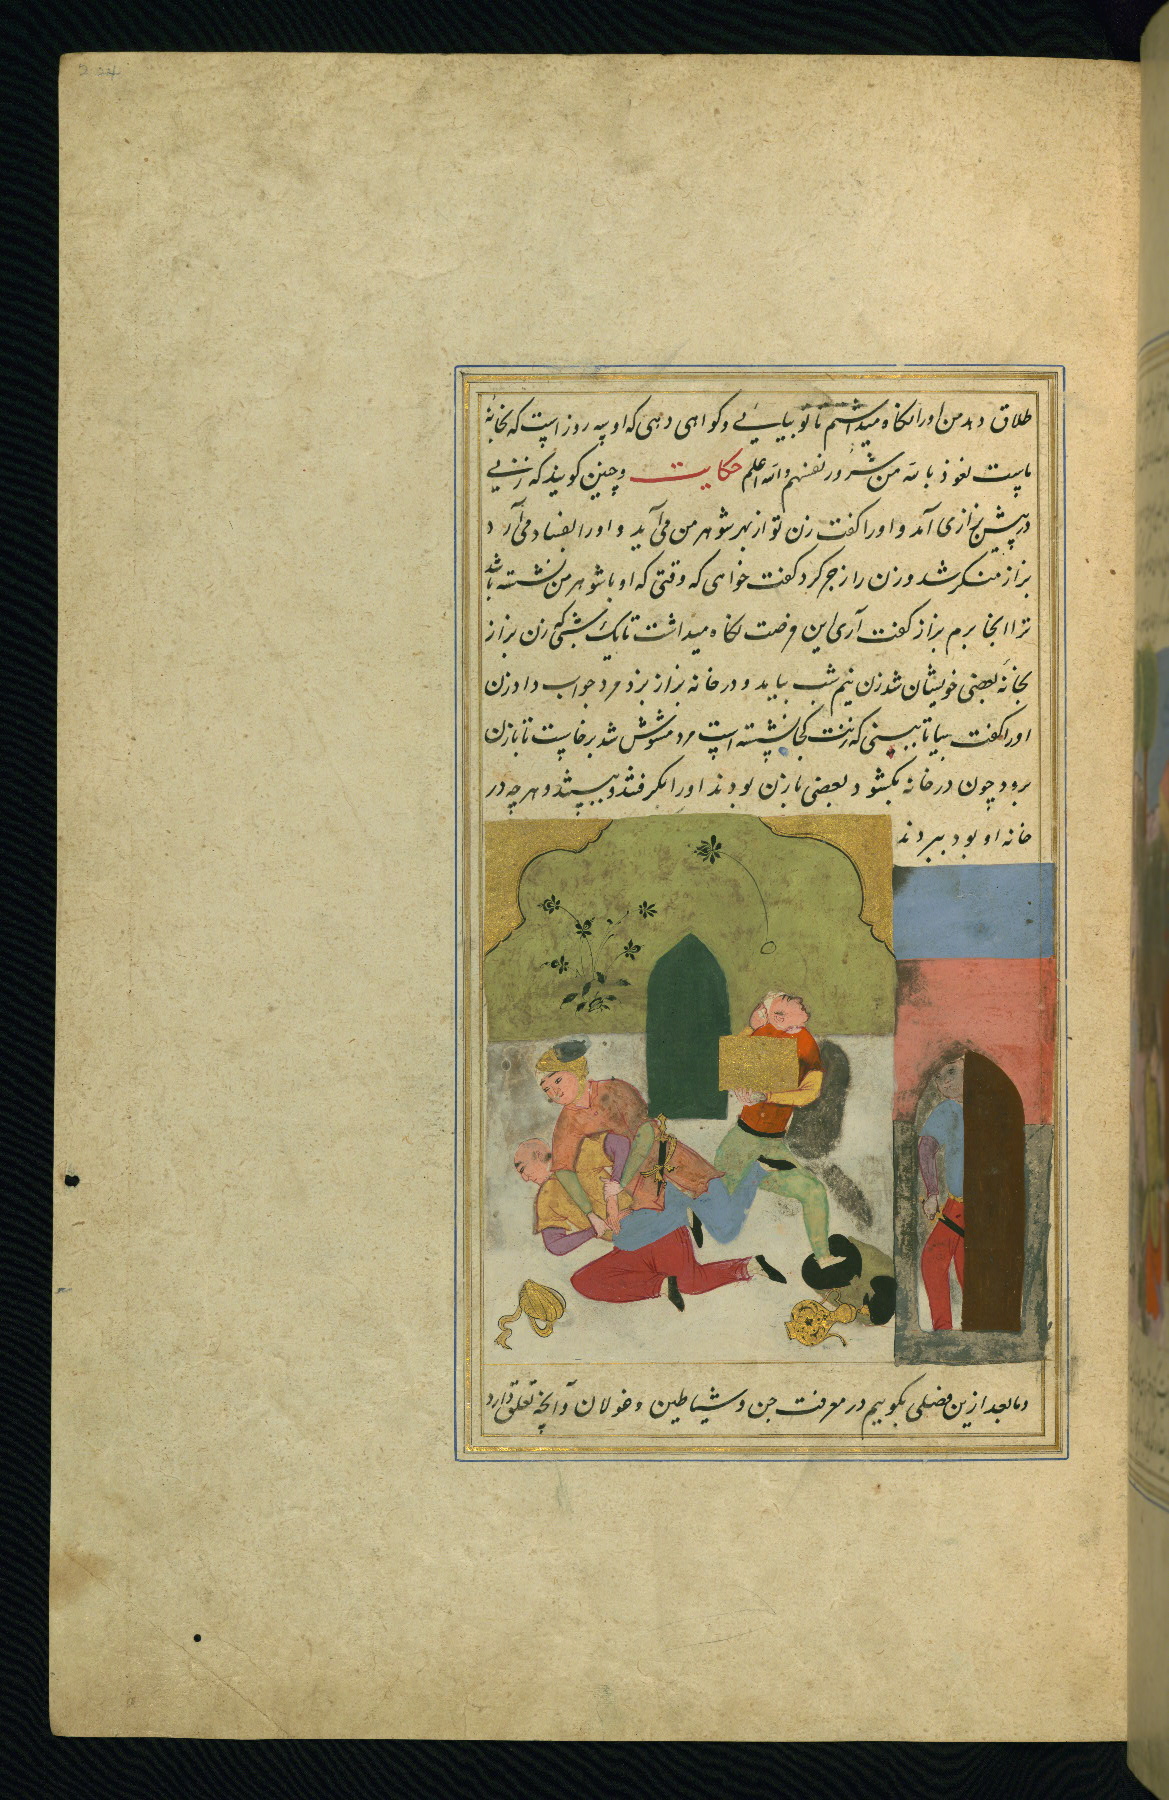 طلاق دهد من او را نکاه میداشتم تا تو بیایی و کواهی دهی که او سه روز است که بخانهٔ
ماست نعوذ بالله من شرور نفسهم والله اعلم حکایت و چنین کویند که زنی
در پیش بزازی آمد و او را کفت زن تو از بهر شوهر من می آید و او را بفساد می آرد
بزاز منکر شد و زن را زجر کرد کفت خواهی که وقتی که او با شوهر من نشسته باشد
ترا آنجا برم بزاز کفت آری این فرصت نکاه میداشت تا یک شبی که زن بزاز
بخانهٔ بعضی خویشان شد زن نیم شب بیامد و در خانه بزاز بزد مرد جواب داد زن
او را کفت بیا تا ببینی که زنت کجا نشسته است مرد مشوش شد برخاست تا بازن
برود چون در خانه بکشود بعضی با زن بودند او را بکرفتند و ببستند و هر چه در
خانه او بود ببردند
و ما بعد ازین فصلی بکوییم در معرفت جن و شیاطین و غولان و آنچه تعلق دارد